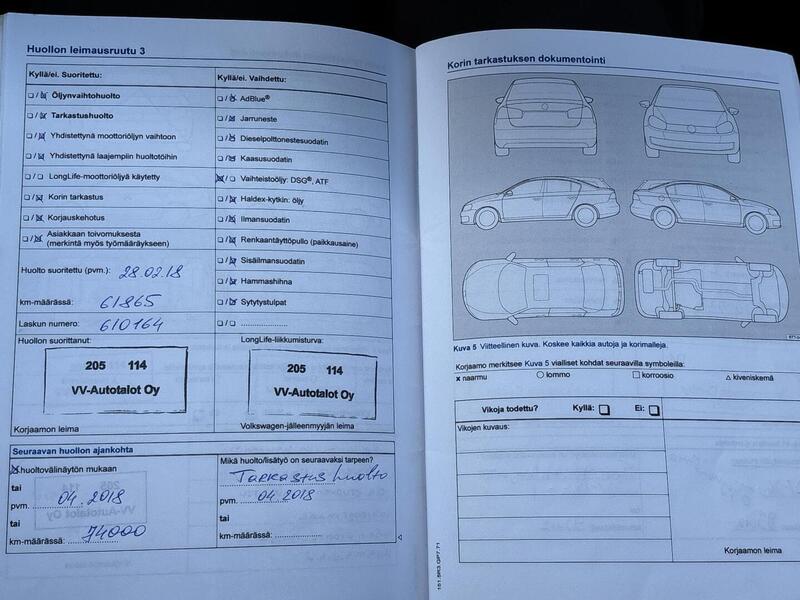 Huollon leimausruutu 3
Kyllä/ei. Suoritettu:
Öljynvaihtohuolto
Tarkastushuolto
Yhdistettynä moottoriöljyn vaihtoon
Yhdistettynä laajempiin huoltotöihin
LongLife-moottoriöljyä käytetty
Korin tarkastus
Korjauskehotus
Asiakkaan toivomuksesta
(merkintä myös työmääräykseen)
Huolto suoritettu (pvm.): 28.02.18
km-määrässä: 61865
Laskun numero: 610164
Kyllä/ei. Vaihdettu:
AdBlue®
Jarruneste
Dieselpolttonestesuodatin
Kaasusuodatin
Vaihteistoöljy: DSG®, ATF
Haldex-kytkin: öljy
Ilmansuodatin
Renkaantäyttöpullo (paikkausaine)
Sisäilmansuodatin
Hammashihna
Sytytystulpat
Huollon suorittanut:
205 114
VV-Autotalot Oy
Korjaamon leima
LongLife-liikkumisturva:
205 114
VV-Autotalot Oy
Volkswagen-jälleenmyyjän leima
Seuraavan huollon ajankohta
huoltovälinäytön mukaan
tai
pvm. 04.2018
tai
km-määrässä: 74000
Mikä huolto/lisätyö on seuraavaksi tarpeen?
Tarkastus huolto
pvm. 04.2018
tai
km-määrässä:
Korin tarkastuksen dokumentointi
Kuva 5 Viitteellinen kuva. Koskee kaikkia autoja ja korimalleja.
Korjaamo merkitsee Kuva 5 vialliset kohdat seuraavilla symboleilla:
x naarmu ○ lommo □ korroosio △ kiveniskemä
Vikoja todettu? Kyllä: Ei:
Vikojen kuvaus:
Korjaamon leima
151.5R3.GP7.71